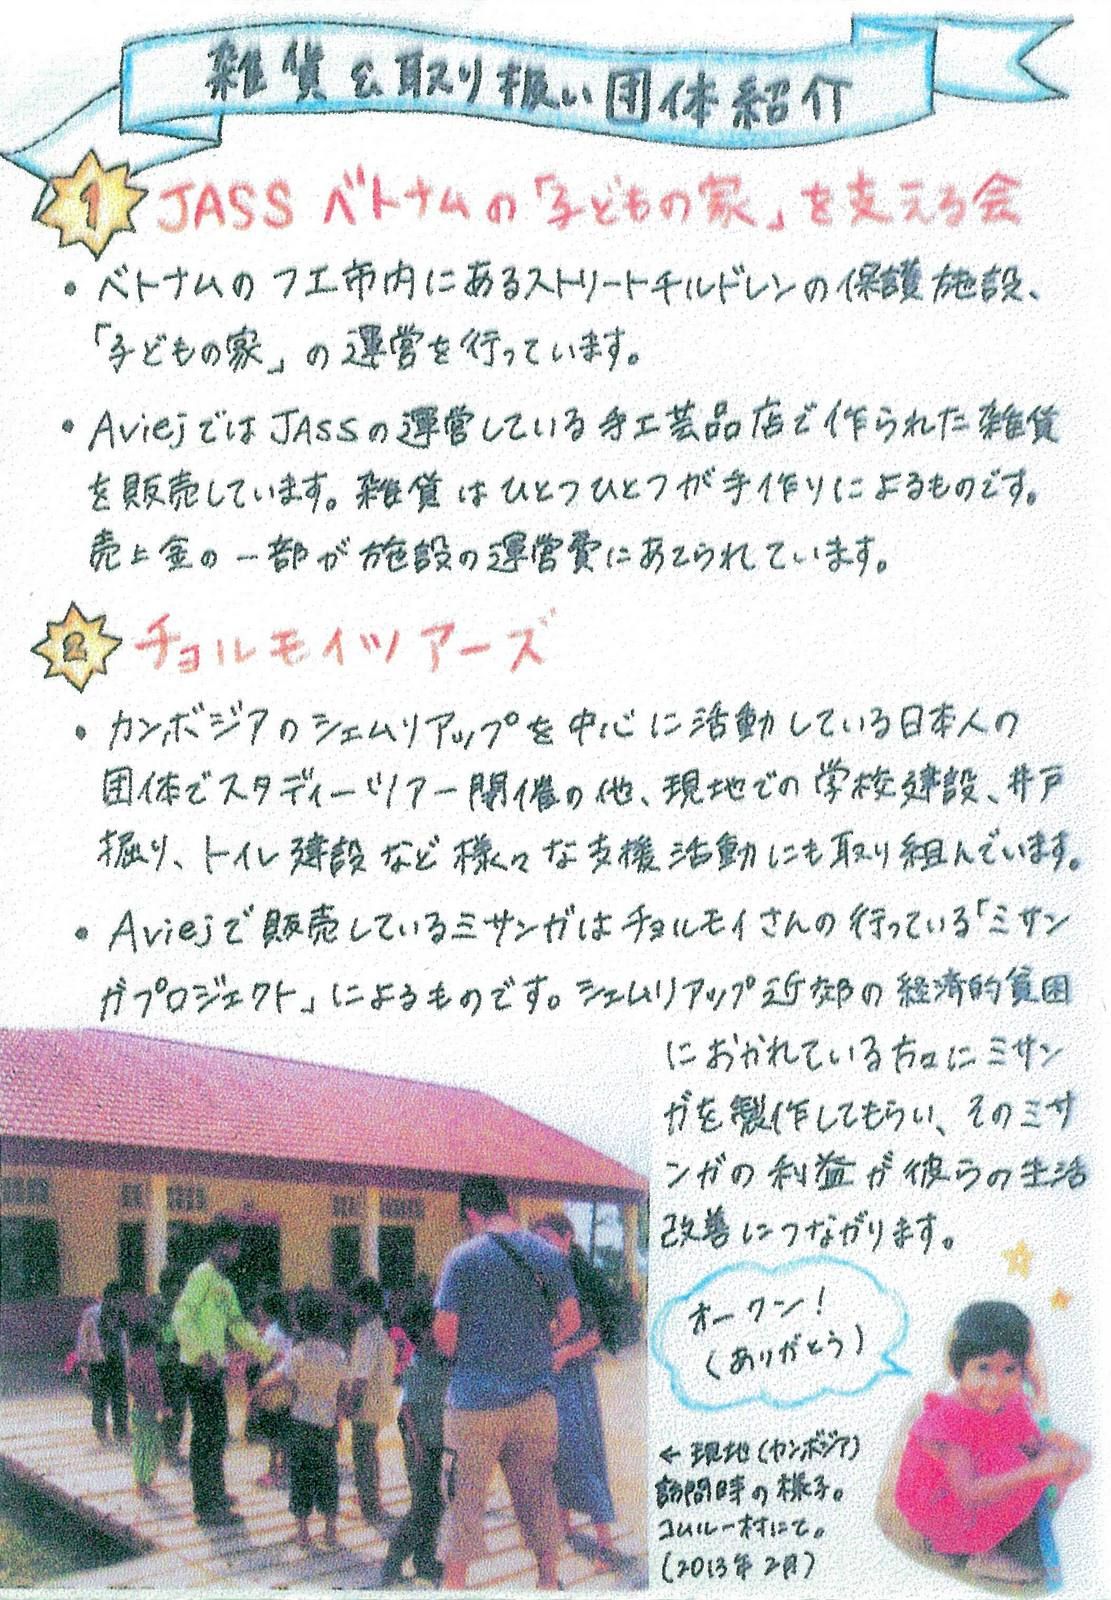 雑貨&取り扱い団体紹介
1 JASS ベトナムの「子どもの家」を支える会
・ベトナムのフエ市内にあるストリートチルドレンの保護施設、
「子どもの家」の運営を行っています。
・AviejではJASSの運営している手工芸品店で作られた雑貨
を販売しています。雑貨はひとつひとつが手作りによるものです。
売上金の一部が施設の運営費にあてられています。
2 チョルモイツアーズ
・カンボジアのシェムリアップを中心に活動している日本人の
団体でスタディーツアー開催の他、現地での学校建設、井戸
掘り、トイレ建設など様々な支援活動にも取り組んでいます。
・Aviejで販売しているミサンガはチョルモイさんの行っている「ミサン
ガプロジェクト」によるものです。シェムリアップ近郊の経済的貧困
におかれている方々にミサン
ガを製作してもらい、そのミサ
ンガの利益が彼らの生活
改善につながります。
オークン!
(ありがとう)
←現地(カンボジア)
訪問時の様子。
コムルー村にて。
(2013年2月)